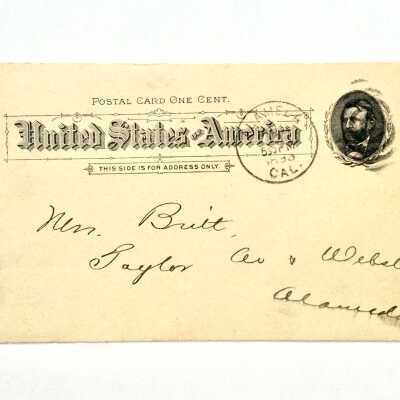 POSTAL CARD ONE CENT.
United States of America
THIS SIDE IS FOR ADDRESS ONLY.
CAL.
Mrs. Britt,
Taylor Av & Webst
Alameda